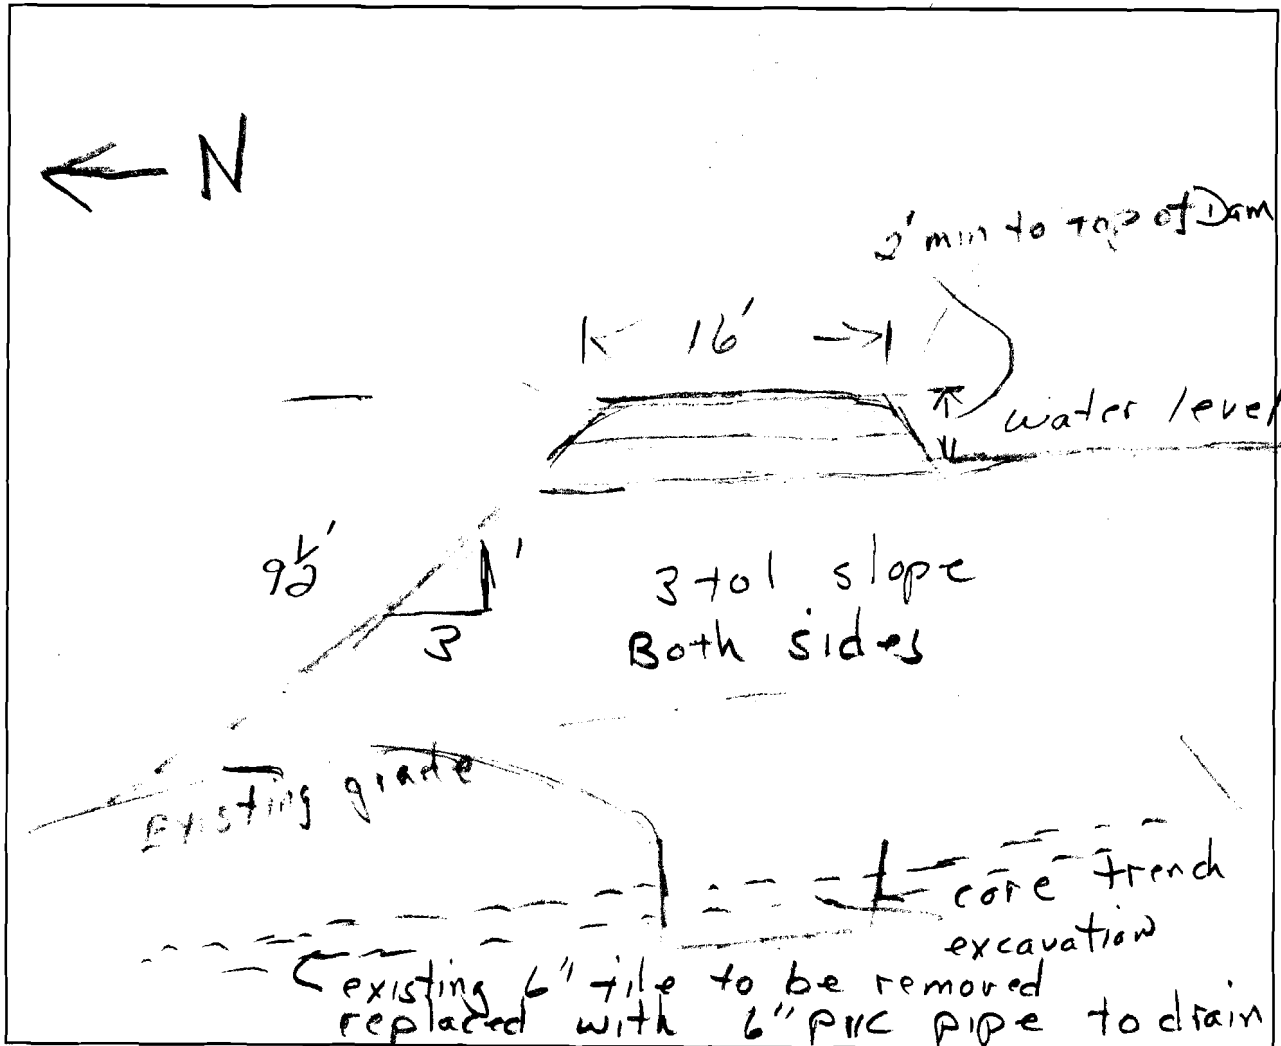 N
2' min to top of Dam
16'
water level
9½'
1
3
3 to 1 slope
Both sides
Existing grade
core trench
excavation
existing 6" tile to be removed
replaced with 6" PVC pipe to drain